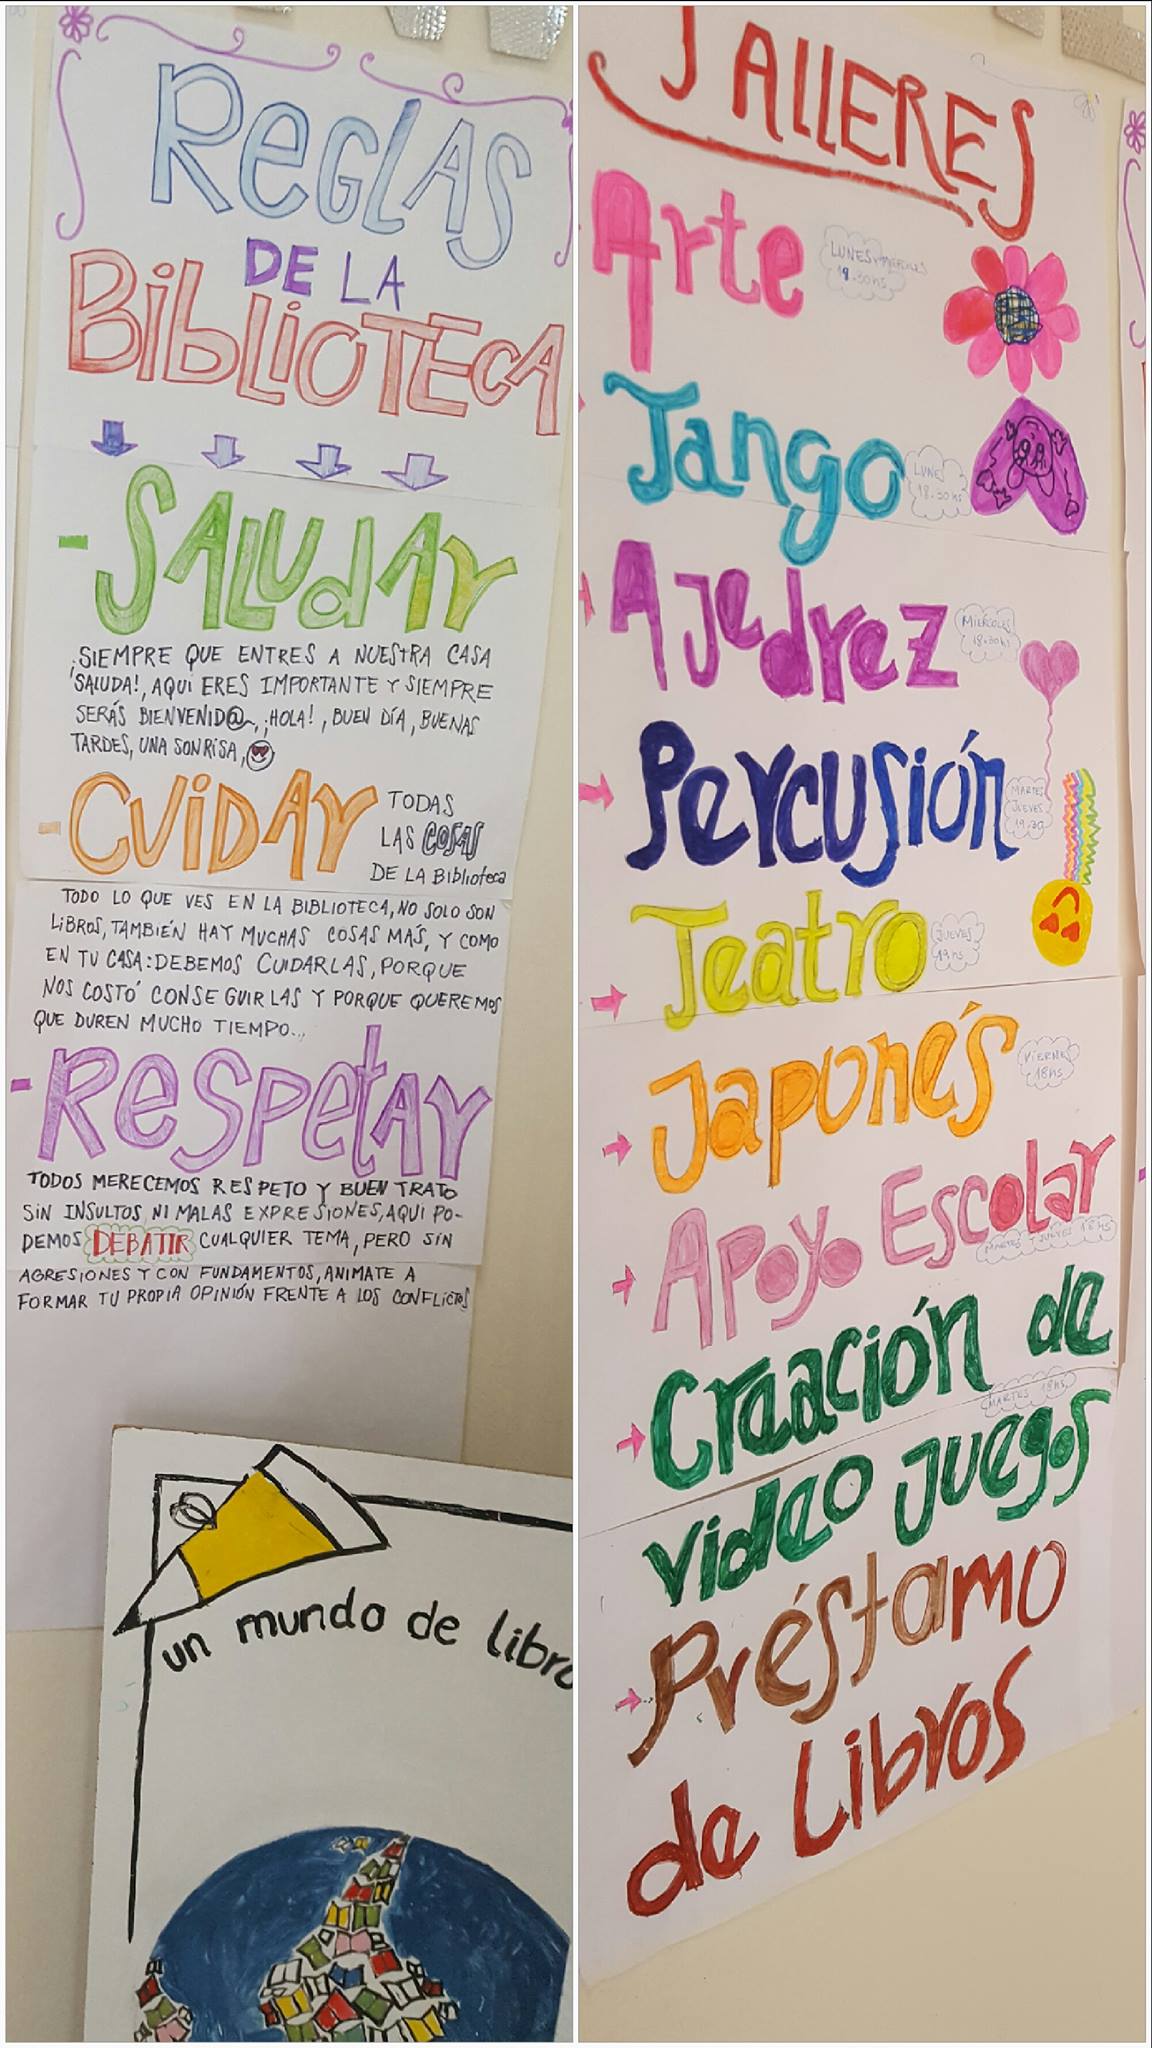 REGLAS
DE LA
BIBLIOTECA
- SALUDAR
¡SIEMPRE QUE ENTRES A NUESTRA CASA
SALUDA!, AQUI ERES IMPORTANTE Y SIEMPRE
SERÁS BIENVENID@, ¡HOLA!, BUEN DÍA, BUENAS
TARDES, UNA SONRISA,
- CUIDAR TODAS
LAS COSAS
DE LA Biblioteca
TODO LO QUE VES EN LA BIBLIOTECA, NO SOLO SON
LIBROS, TAMBIÉN HAY MUCHAS COSAS MAS, Y COMO
EN TU CASA: DEBEMOS CUIDARLAS, PORQUE
NOS COSTÓ CONSEGUIRLAS Y PORQUE QUEREMOS
QUE DUREN MUCHO TIEMPO...
- RESPETAR
TODOS MERECEMOS RESPETO Y BUEN TRATO
SIN INSULTOS, NI MALAS EXPRESIONES, AQUI PO-
DEMOS DEBATIR CUALQUIER TEMA, PERO SIN
AGRESIONES Y CON FUNDAMENTOS, ANIMATE A
FORMAR TU PROPIA OPINIÓN FRENTE A LOS CONFLICTOS
un mundo de libro
TALLERES
Arte
LUNES
Tango
LUNES
18.30 HS
Ajedrez
MIÉRCOLES
18.30 hs
Percusión
MARTES
JUEVES
19.30
Teatro
JUEVES
19 hs
Japonés
VIERNES
18 HS
Apoyo Escolar
MARTES Y JUEVES 18 HS
Creación de
MARTES 18 HS
video juegos
Préstamo
de Libros